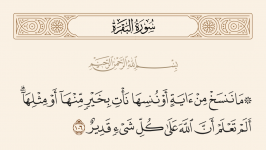 سُورَةُ البَقَرَةِ
بِسْمِ اللَّهِ الرَّحْمَنِ الرَّحِيمِ
۞ مَا نَنسَخْ مِنْ ءَايَةٍ أَوْ نُنسِهَا نَأْتِ بِخَيْرٍ مِّنْهَا أَوْ مِثْلِهَآ ۗ
أَلَمْ تَعْلَمْ أَنَّ اللَّهَ عَلَىٰ كُلِّ شَيْءٍ قَدِيرٌ ١٠٦